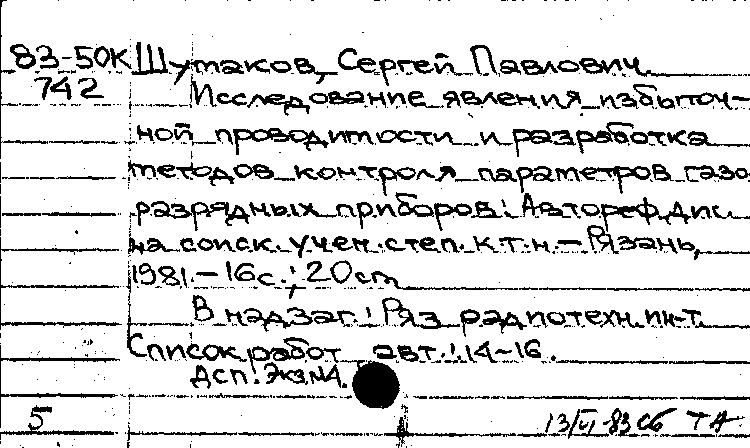 83-50К Шутаков, Сергей Павлович
742 Исследование явления избыточ-
ной проводимости и разработка
методов контроля параметров газо
разрядных приборов: Автореф. дис.
на соиск. учен. степ. к.т.н. - Рязань,
1981. - 16 с.; 20 cm
В надзаг.: Ряз радиотехн. ин-т.
Список работ авт.: 14-16.
Дсп. Экз.№1.
5 13/VI-83 сб ТА